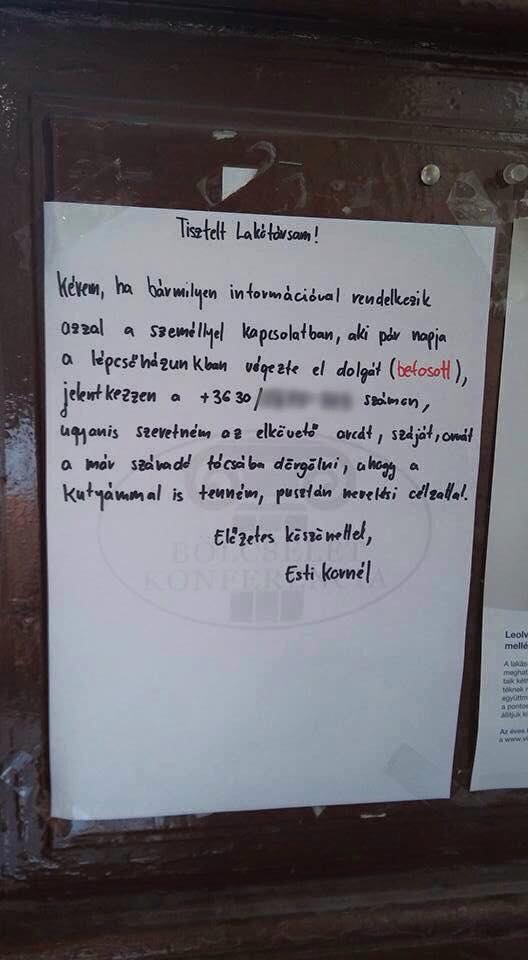 Tisztelt Lakótársam!
Kérem, ha bármilyen információval rendelkezik
azzal a személlyel kapcsolatban, aki pár napja
a lépcsőházunkban végezte el dolgát (befosott),
jelentkezzen a +3630/ számon,
ugyanis szeretném az elkövető arcát, száját, orrát
a már száradó tócsába dörgölni, ahogy a
kutyámmal is tenném, pusztán nevelési célzattal.
Előzetes köszönettel,
Esti Kornél
BÖLCSELET
KONFERENCIA
Leolv
mellé
A lakás
meghat
taik kéth
téknek m
együttm
a pontos
állítjuk ki
Az éves l
a www.vi